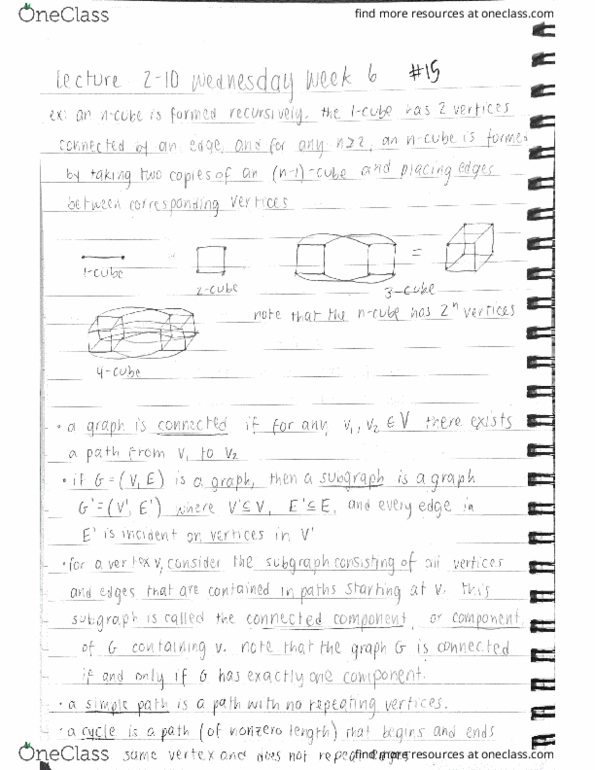 OneClass
find more resources at oneclass.com
Lecture 2-10 Wednesday Week 6 #15
ex: an n-cube is formed recursively. the 1-cube has 2 vertices
connected by an edge, and for any n≥2, an n-cube is formed
by taking two copies of an (n-1)-cube and placing edges
between corresponding vertices
1-cube
2-cube
=
3-cube
note that the n-cube has 2ⁿ vertices
4-cube
• a graph is connected if for any v₁, v₂ ∈ V there exists
a path from v₁ to v₂
• if G=(V,E) is a graph, then a subgraph is a graph
G'=(V',E') where V'⊆V, E'⊆E, and every edge in
E' is incident on vertices in V'
• for a vertex v, consider the subgraph consisting of all vertices
and edges that are contained in paths starting at v. this
subgraph is called the connected component, or component
of G containing v. note that the graph G is connected
if and only if G has exactly one component.
• a simple path is a path with no repeating vertices.
• a cycle is a path (of nonzero length) that begins and ends
same vertex and does not repeat
OneClass
find more resources at oneclass.com